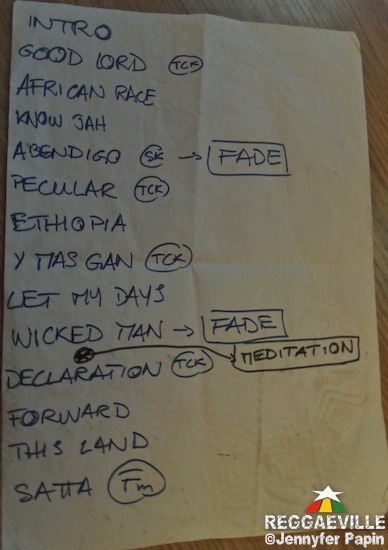 INTRO
GOOD LORD TCK
AFRICAN RACE
KNOW JAH
ABENDIGO SK → FADE
PECULAR TCK
ETHIOPIA
Y MAS GAN TCK
LET MY DAYS
WICKED MAN → FADE
MEDITATION
DECLARATION TCK
FORWARD
THIS LAND
SATTA Fm
REGGAEVILLE
©Jennyfer Papin